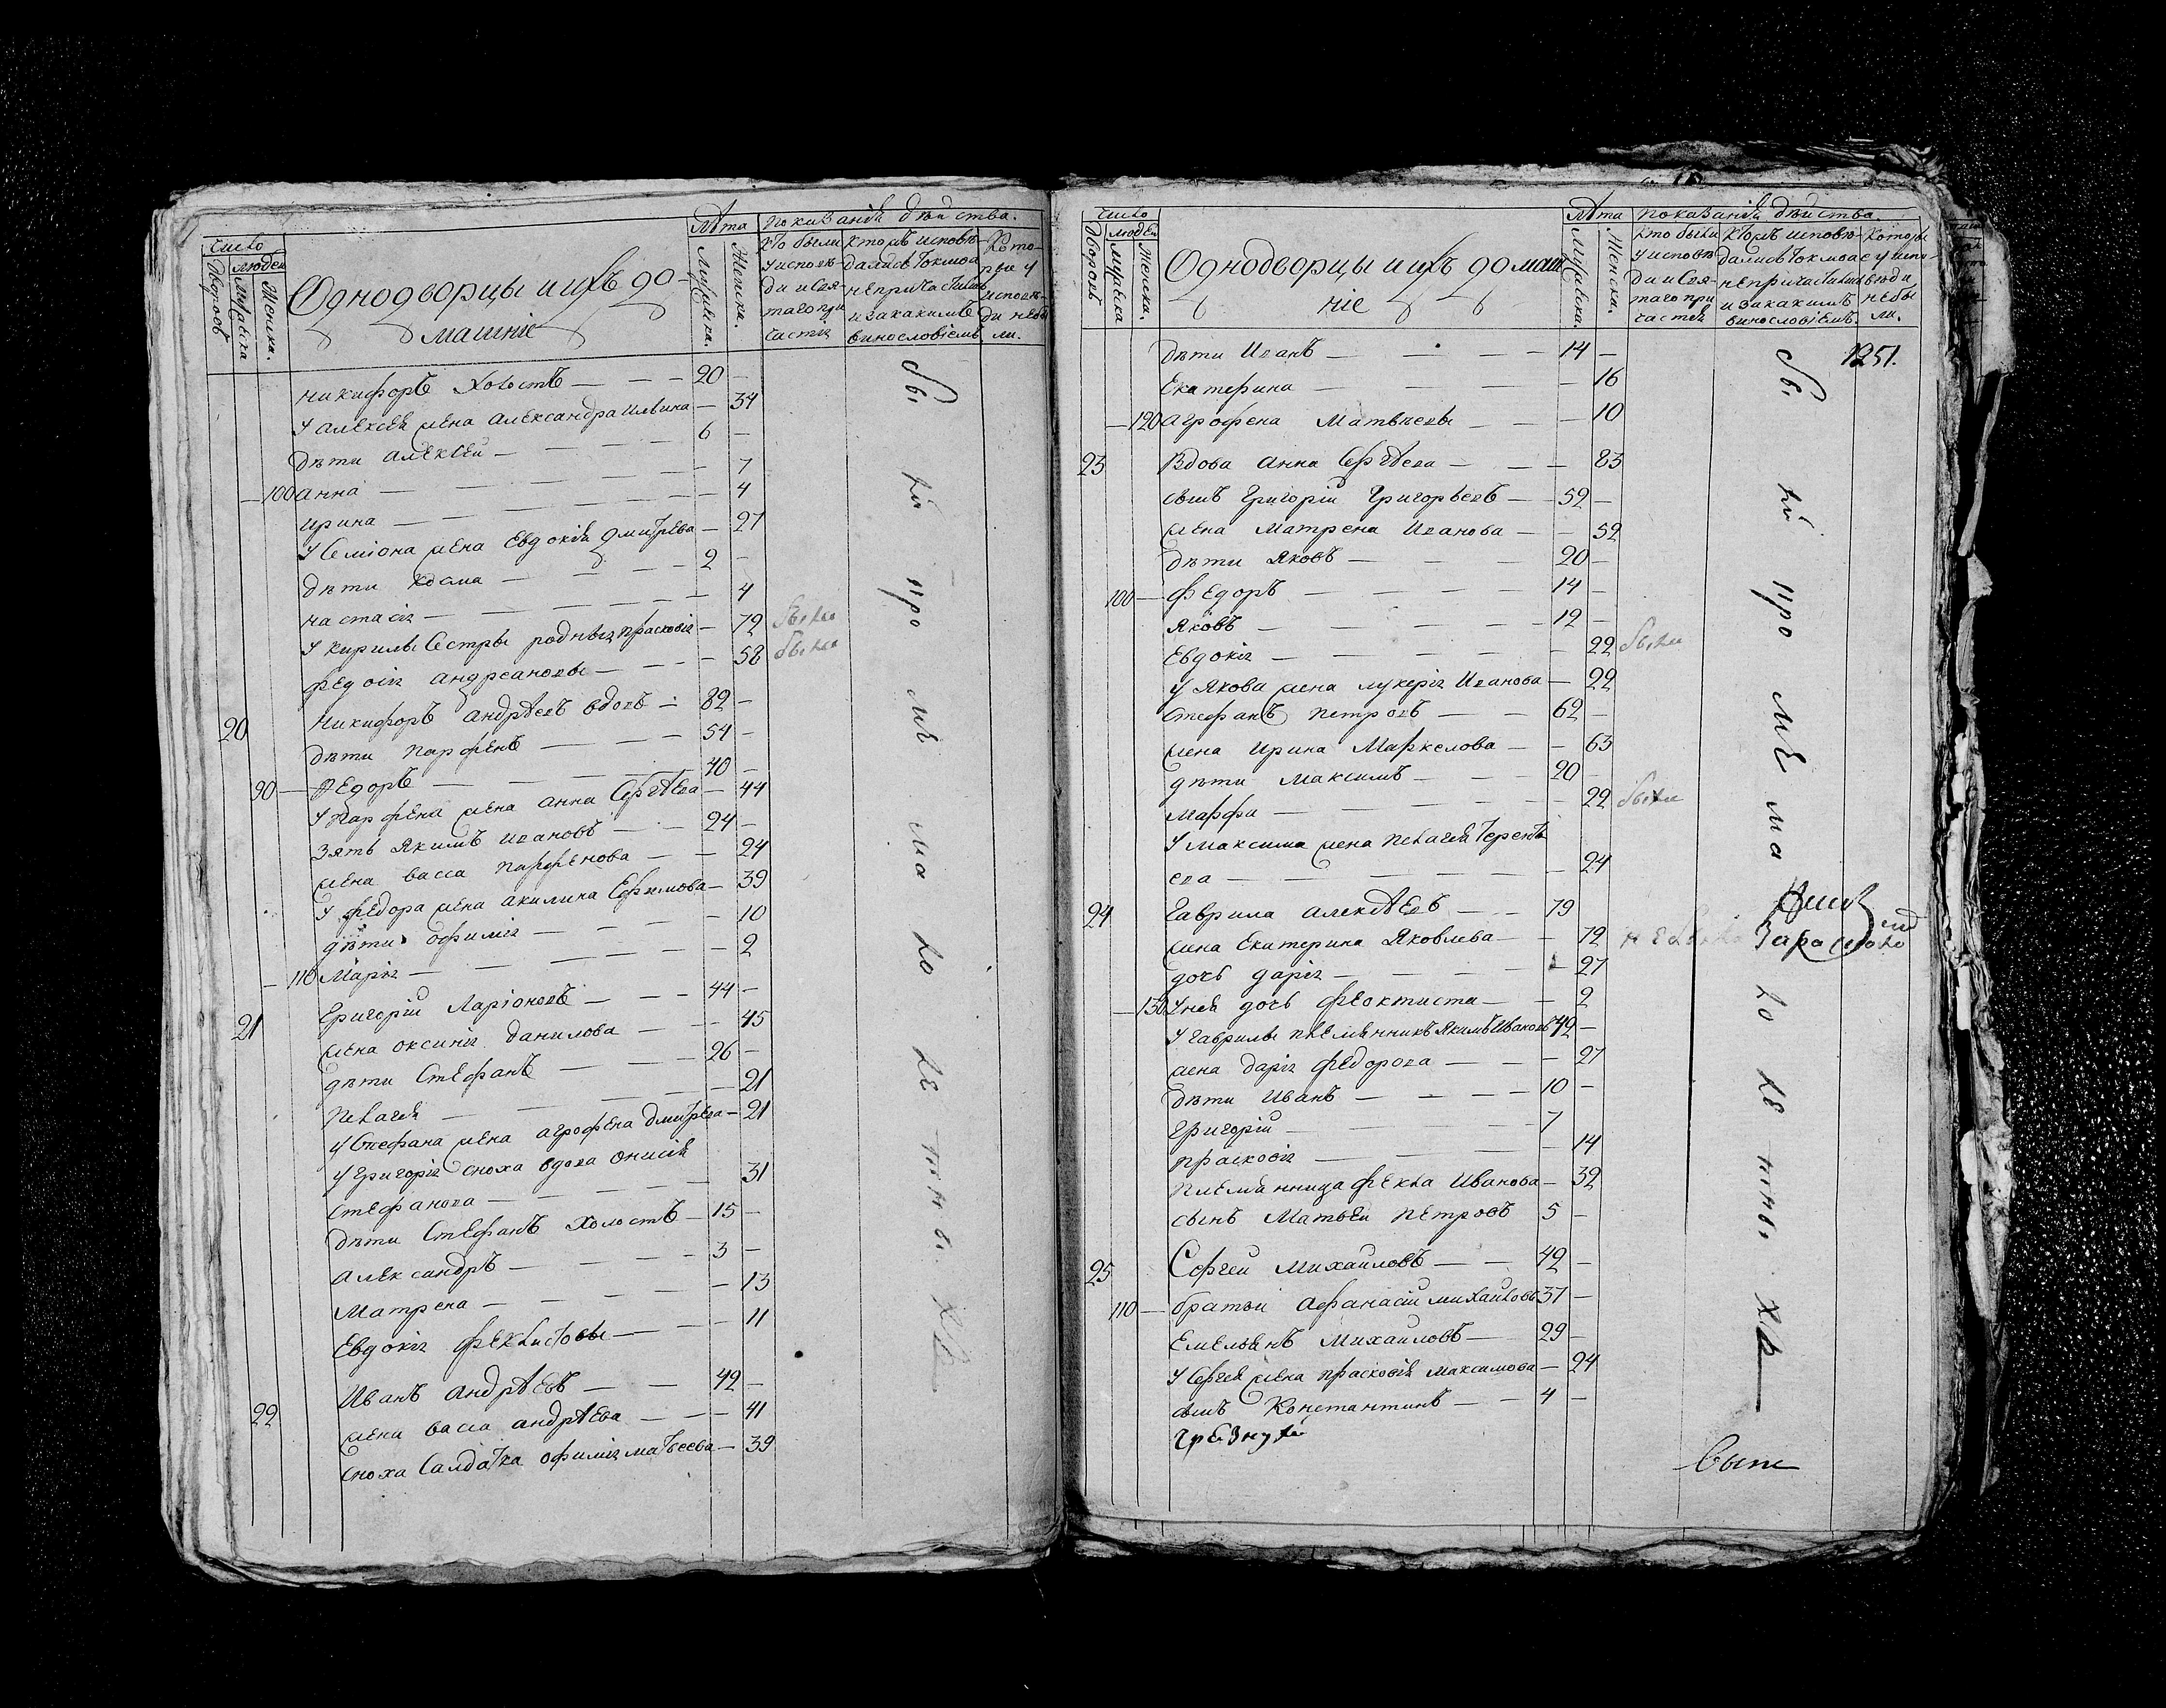 число
Лѣта показанiя дѣиства.
дворовъ
людеи
Мужеска
Женска.
Однодворцы и ихъ до-
машнiе
Мужеска.
Женска.
кто были
у исповѣ
ди и Свя-
таго при
частiя
кто исповѣ-
дались токмо а
не причастились
и за какимъ
винословiемъ
Кото-
рые у
исповѣ-
ди небы
ли.
никифоръ Холостъ — 20 —
У алексея жена александра ильина — 34
дѣти алексеи — 6 —
— 100 анна — 7
ирина — 4
У Семiона жена Евдокiя дмитрева — 27
дѣти косма — 2 —
настасiя — 4
У кирилы Сестры родныя прасковiя — 72 были
федосiя андреановы — 58 были
20 никифоръ андрѣевъ вдовъ — 82 —
дѣти парфенъ — 54 —
90 — Федоръ — 40 —
У парфена жена анна Сергѣева — 44
зять Якимъ ивановъ — 24 —
жена васса парфенова — 24
У федора жена акилина Ефимова — 39
дѣти офимiя — 10
— 110 Марiя — 2
21 Григорiи Ларiоновъ — 44 —
жена оксинiя данилова — 45
дѣти Стефанъ — 26 —
пелагея — 21
У Стефана жена агрофена дмитрева — 21
У Григорiя сноха вдова онисiя
стефанова — 31
дѣти Стефанъ Холостъ — 15 —
александръ — 3 —
Матрена — 13
Евдокiя феклистовы — 11
22 Иванъ андрѣевъ — 42 —
жена васса андрѣева — 41
сноха Салдатка офимiя матвеева — 39
число
Лѣта показанiя дѣиства.
дворовъ
людеи
Мужеска
Женска.
Однодворцы и ихъ домаш
нiе
Мужеска.
Женска.
кто были
у исповѣ
ди и Свя-
таго при
частiя
кто исповѣ-
дались токмо а
не причастились
и за какимъ
винословiемъ.
которы
е у испо-
вѣди
небы
ли.
1251.
дѣти Иванъ — 14 —
Екатерина — 16
— 120 агрофена Матвѣевы — 10
23 Вдова анна Сергѣева — 83
сынъ Григорiи Григорьевъ — 59 —
жена Матрена Иванова — 52
дѣти Яковъ — 20 —
100 — федоръ — 14 —
Яковъ — 12 —
Евдокiя — 22 были
У Якова жена лукерiя Иванова — 22
Стефанъ петровъ — 62 —
жена ирина Маркелова — 63
дѣти Максимъ — 20 —
Марфа — 22 были
У максима жена пелагея Терентѣ
ева — 24
24 Гаврила алексѣевъ — 79
жена Екатерина Яковлева — 72
дочь дарiя — 27
— 130 У нея дочь феоктиста — 2
У гаврилы племянникъ Якимъ Ивановъ 42 —
жена дарiя федорова — 27
дѣти Иванъ — 10 —
григорiи — 7
прасковiя — 14
племянница фекла Иванова — 32
сынъ Матвеи петровъ 5 —
25 Сергеи Михаиловъ — 42 —
110 — братьи афанасiи михаиловъ 37 —
Емельянъ Михаиловъ — 29 —
У Сергея жена прасковiя максимова — 24
сынъ Константинъ — 4 —